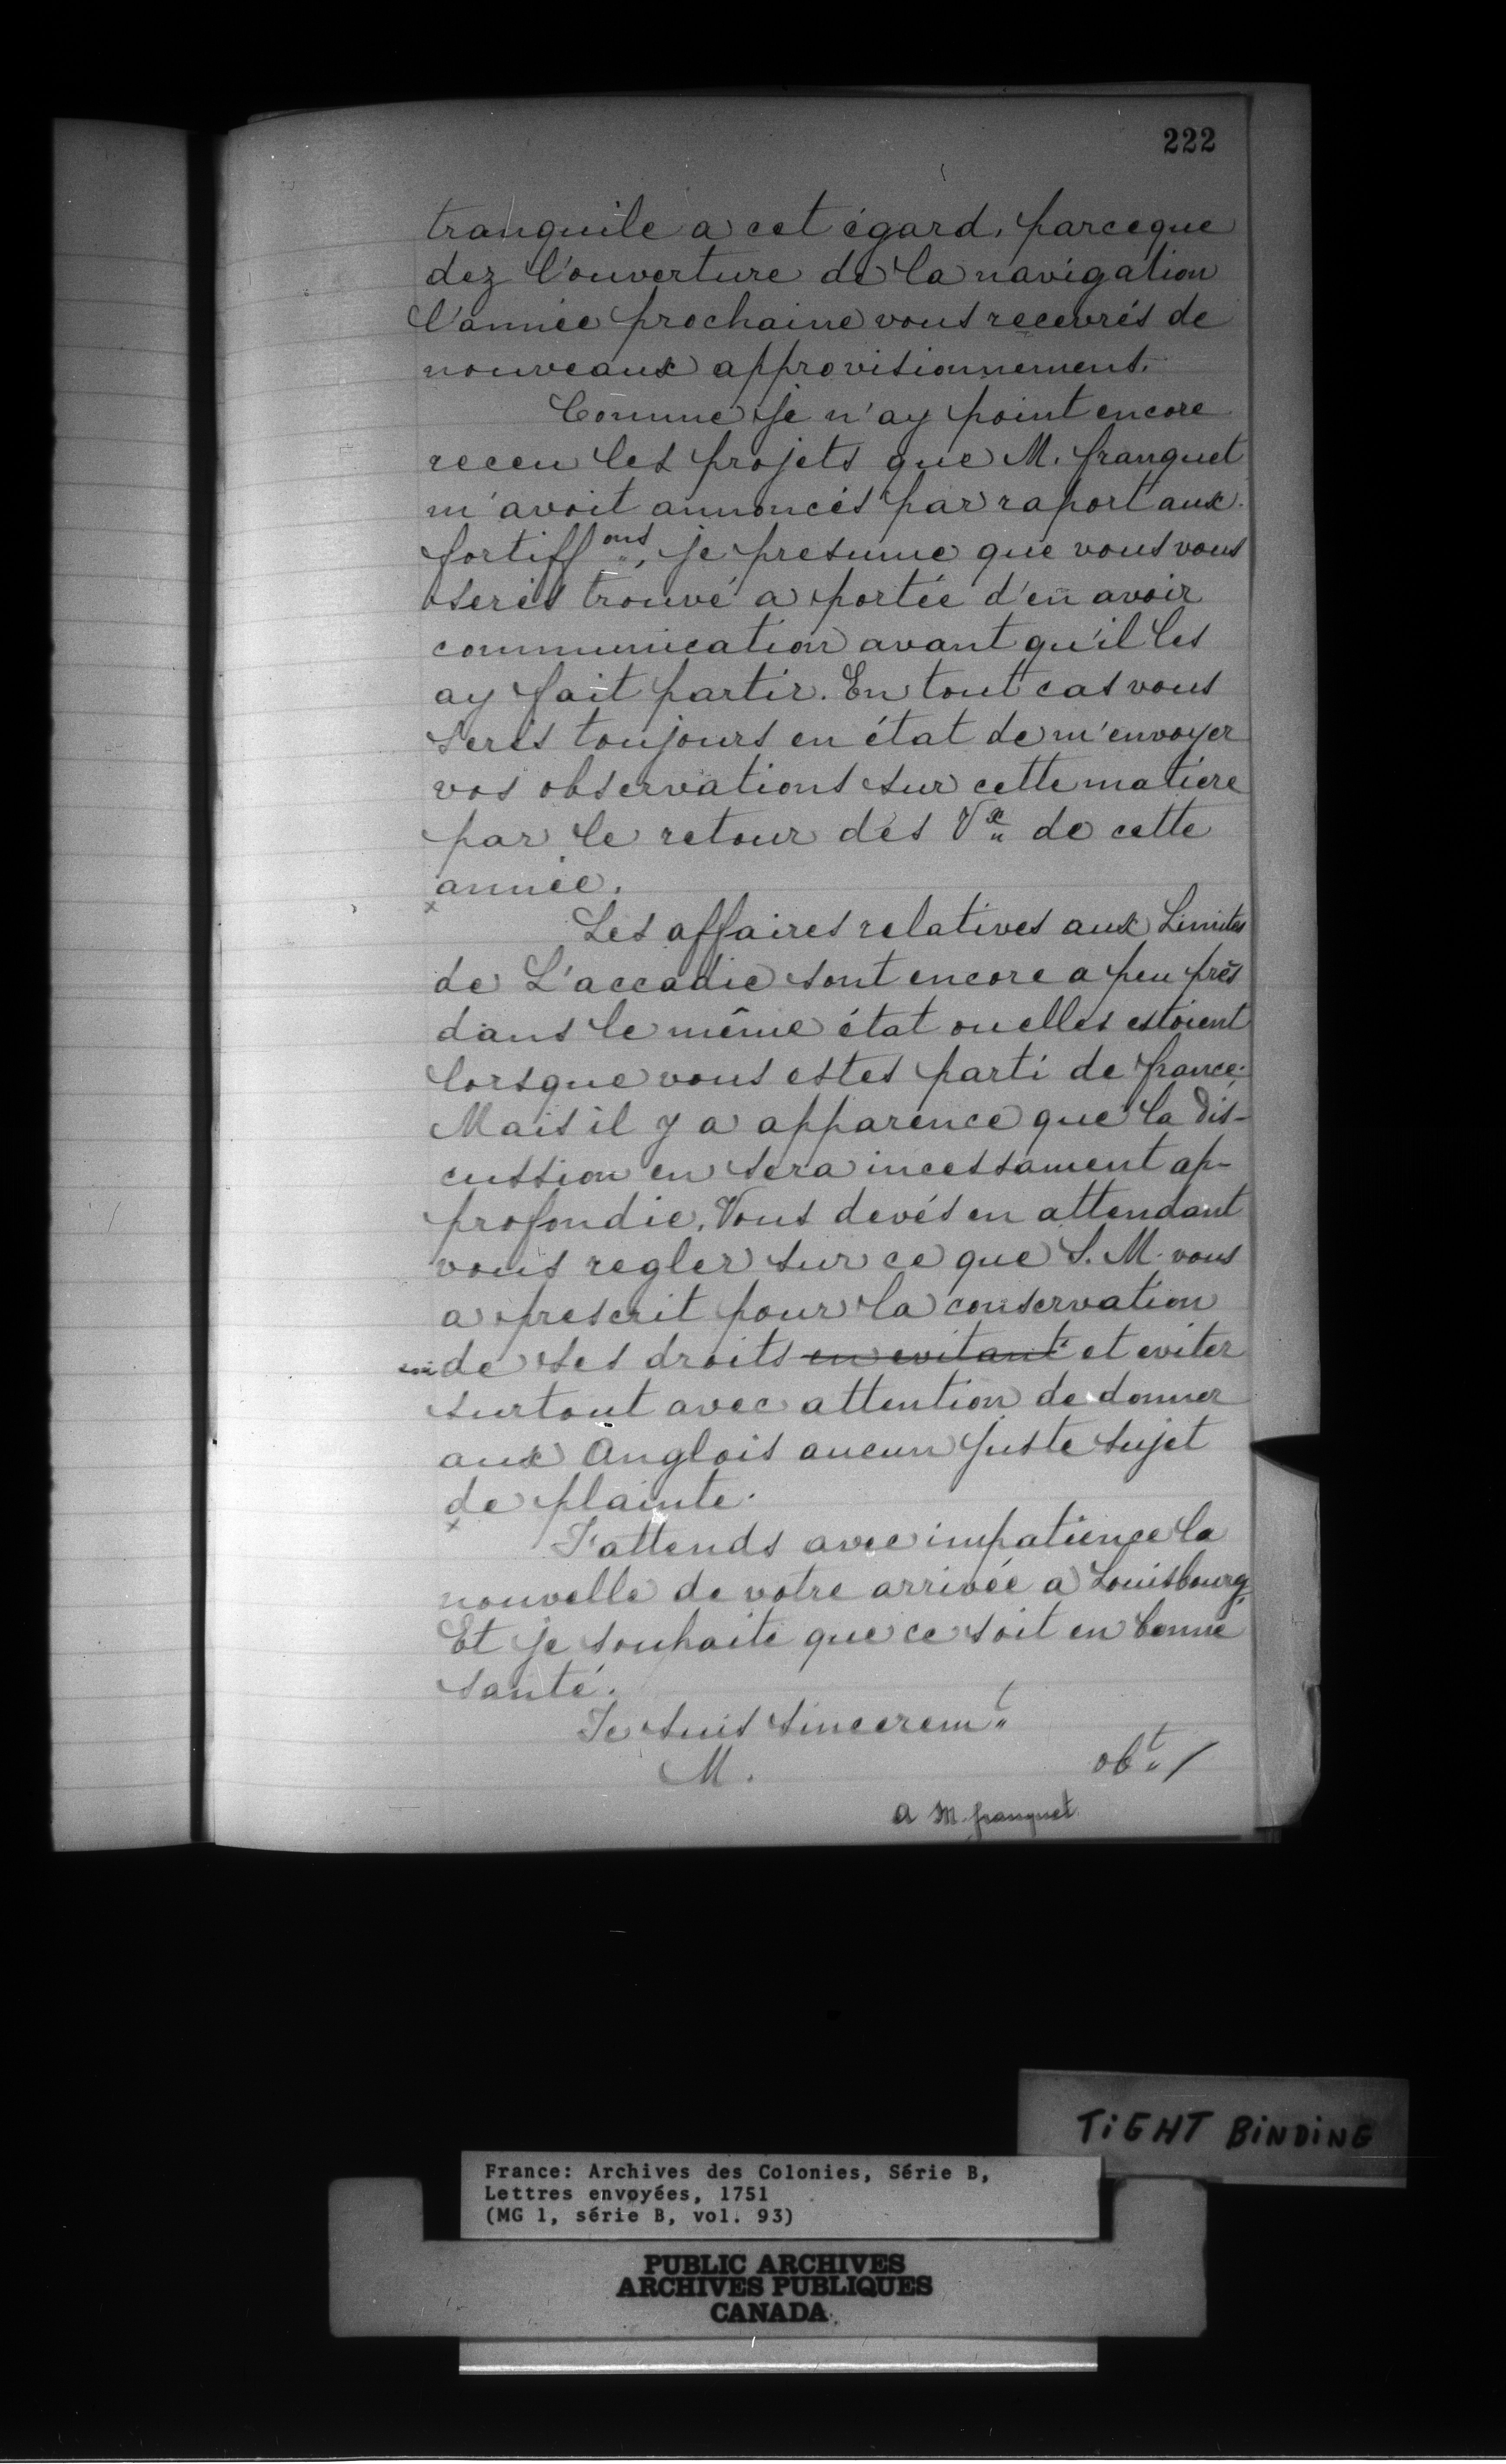 222
tranquile a cet égard, parceque
dez l'ouverture de la navigation
l'année prochaine vous recevrés de
nouveaux approvisionnement.
Comme je n'ay point encore
receu les projets que M. franquet
m'avoit annoncés par raport aux
fortiff.ons, je presume que vous vous
serés trouvé a portée d'en avoir
communication avant qu'il les
ay fait partir. En tout cas vous
serés toujours en état de m'envoyer
vos observations sur cette matiere
par le retour des Vx de cette
année.
x
Les affaires relatives aux Limites
de L'accadie sont encore a peu près
dans le même état ou elles estoient
lorsque vous estes parti de france.
Mais il y a apparence que la dis-
cussion en sera incessament ap-
profondie. Vous devés en attendant
vous regler sur ce que S. M. vous
a prescrit pour la conservation
de ses droits en evitant et eviter
surtout avec attention de donner
aux Anglois aucun juste sujet
de plainte.
x
J'attends avec impatience la
nouvelle de votre arrivée a Louisbourg,
Et je souhaite que ce soit en bonne
santé.
Je suis sincerem.t
M. ob.t /
A M. franquet
TiGHT BiNDiNG
France: Archives des Colonies, Série B,
Lettres envoyées, 1751
(MG 1, série B, vol. 93)
PUBLIC ARCHIVES
ARCHIVES PUBLIQUES
CANADA